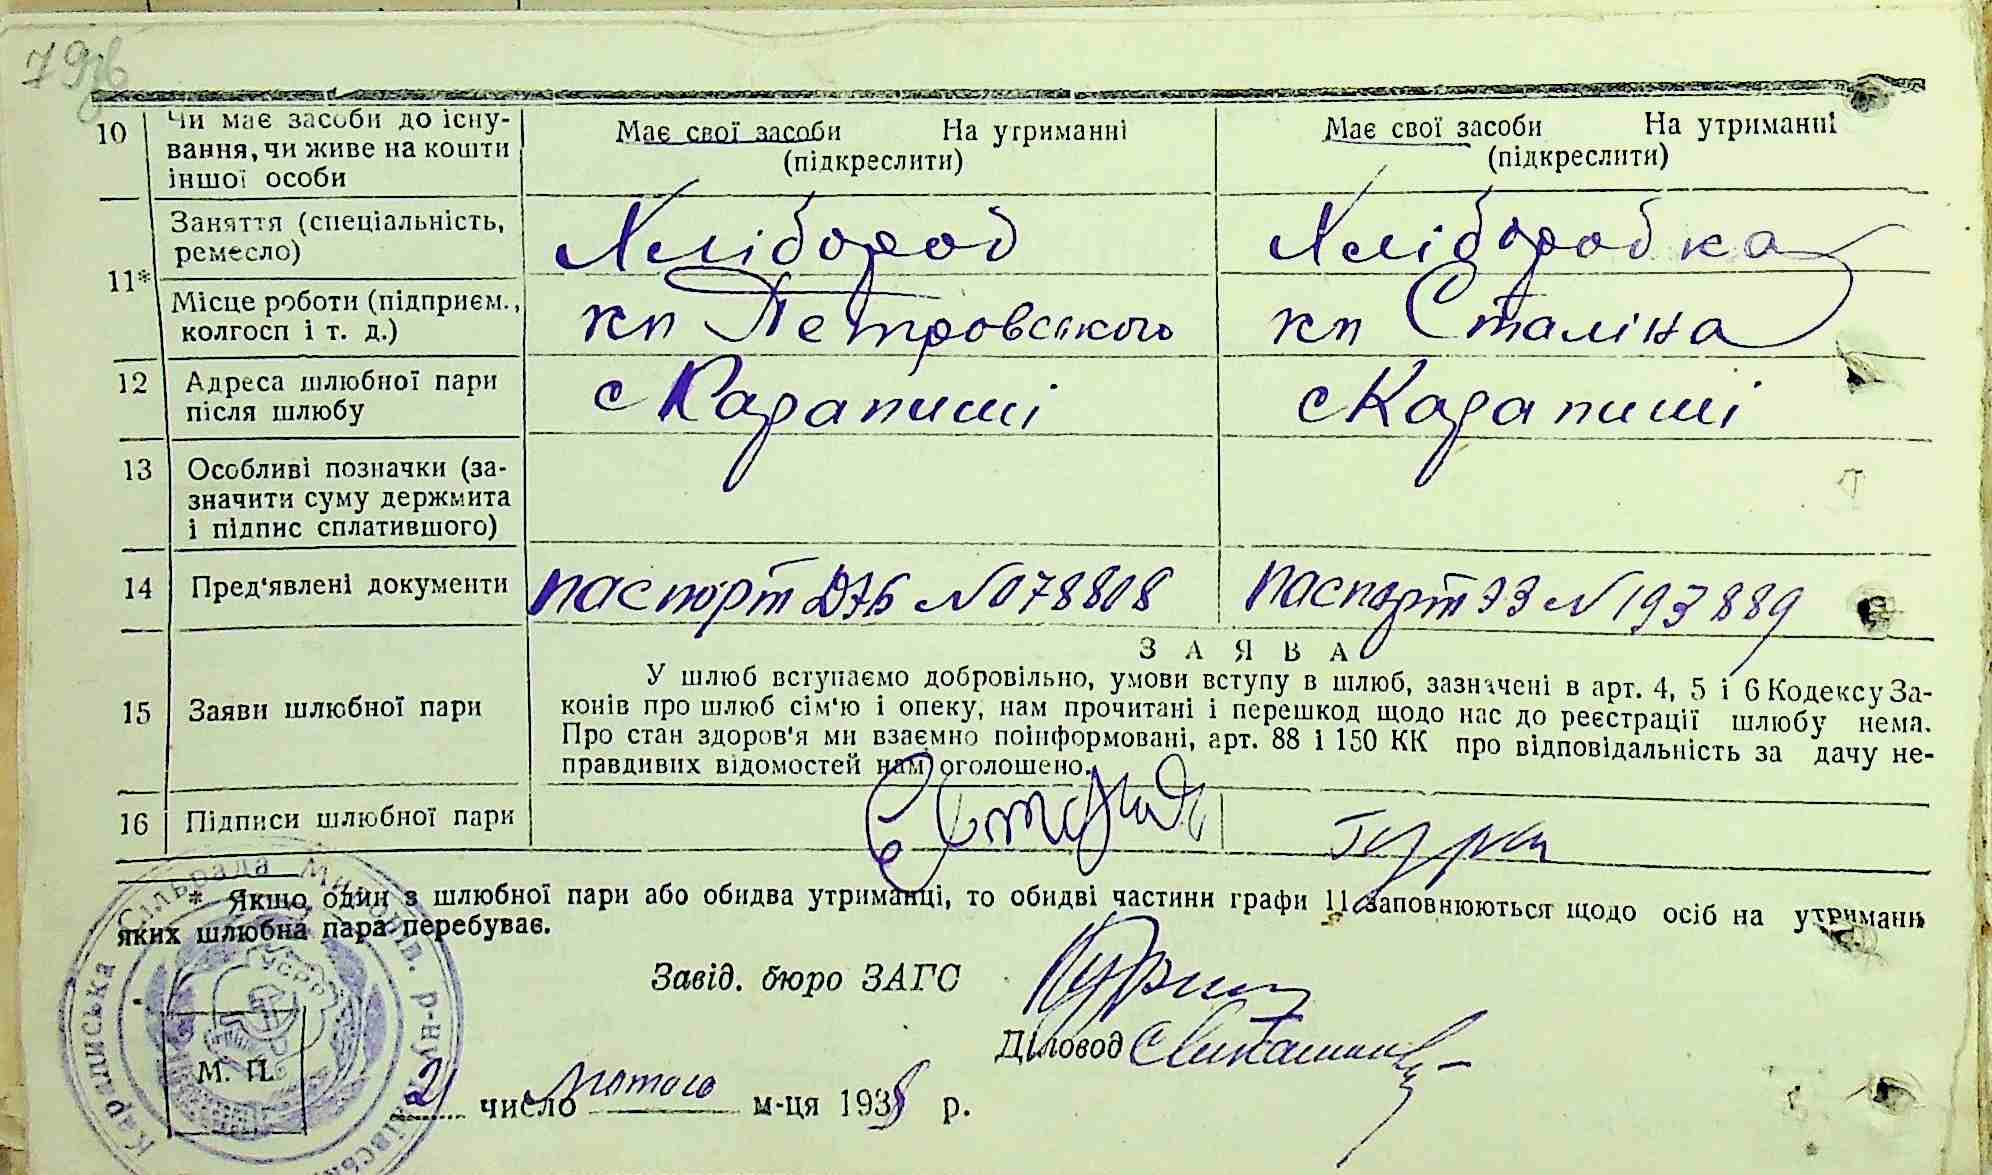 79зв
10 Чи має засоби до існу- Має свої засоби На утриманні Має свої засоби На утриманні
вання, чи живе на кошти (підкреслити) (підкреслити)
іншої особи
11* Заняття (спеціальність, Хлібороб Хліборобка
ремесло)
Місце роботи (підприєм., кп Петровського кп Сталіна
колгосп і т. д.)
12 Адреса шлюбної пари с Карапиші с Карапиші
після шлюбу
13 Особливі позначки (за-
значити суму держмита
і підпис сплатившого)
14 Пред'явлені документи паспорт №078808 паспорт ЭЗ №193889
ЗАЯВА
15 Заяви шлюбної пари
У шлюб вступаємо добровільно, умови вступу в шлюб, зазначені в арт. 4, 5 і 6 Кодексу За-
конів про шлюб сім'ю і опеку, нам прочитані і перешкод щодо нас до реєстрації шлюбу нема.
Про стан здоров'я ми взаємно поінформовані, арт. 88 і 150 КК про відповідальність за дачу не-
правдивих відомостей нам оголошено.
16 Підписи шлюбної пари
* Якщо один з шлюбної пари або обидва утриманці, то обидві частини графи 11 заповнюються щодо осіб на утриманн
яких шлюбна пара перебуває.
Завід. бюро ЗАГС
Діловод
М. П.
21 число лютого м-ця 1938 р.
Сільрада
р-ну
УСРР